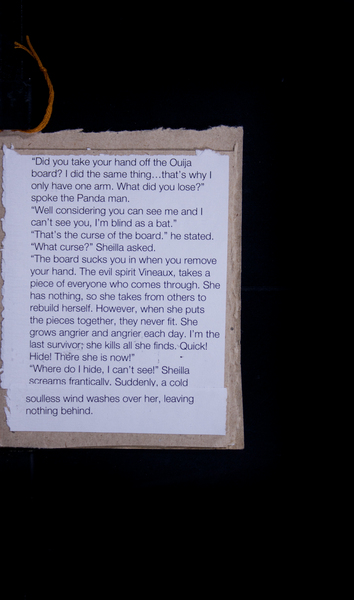 “Did you take your hand off the Ouija
board? I did the same thing...that’s why I
only have one arm. What did you lose?”
spoke the Panda man.
“Well considering you can see me and I
can’t see you, I’m blind as a bat.”
“That’s the curse of the board.” he stated.
“What curse?” Sheilla asked.
“The board sucks you in when you remove
your hand. The evil spirit Vineaux, takes a
piece of everyone who comes through. She
has nothing, so she takes from others to
rebuild herself. However, when she puts
the pieces together, they never fit. She
grows angrier and angrier each day. I’m the
last survivor; she kills all she finds. Quick!
Hide! There she is now!”
“Where do I hide, I can’t see!” Sheilla
screams frantically. Suddenly, a cold
soulless wind washes over her, leaving
nothing behind.